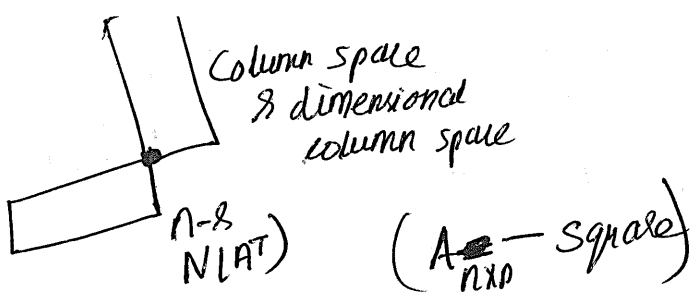 Column space
r dimensional
column space
n-r
N(AT)
(A — square)
nxn